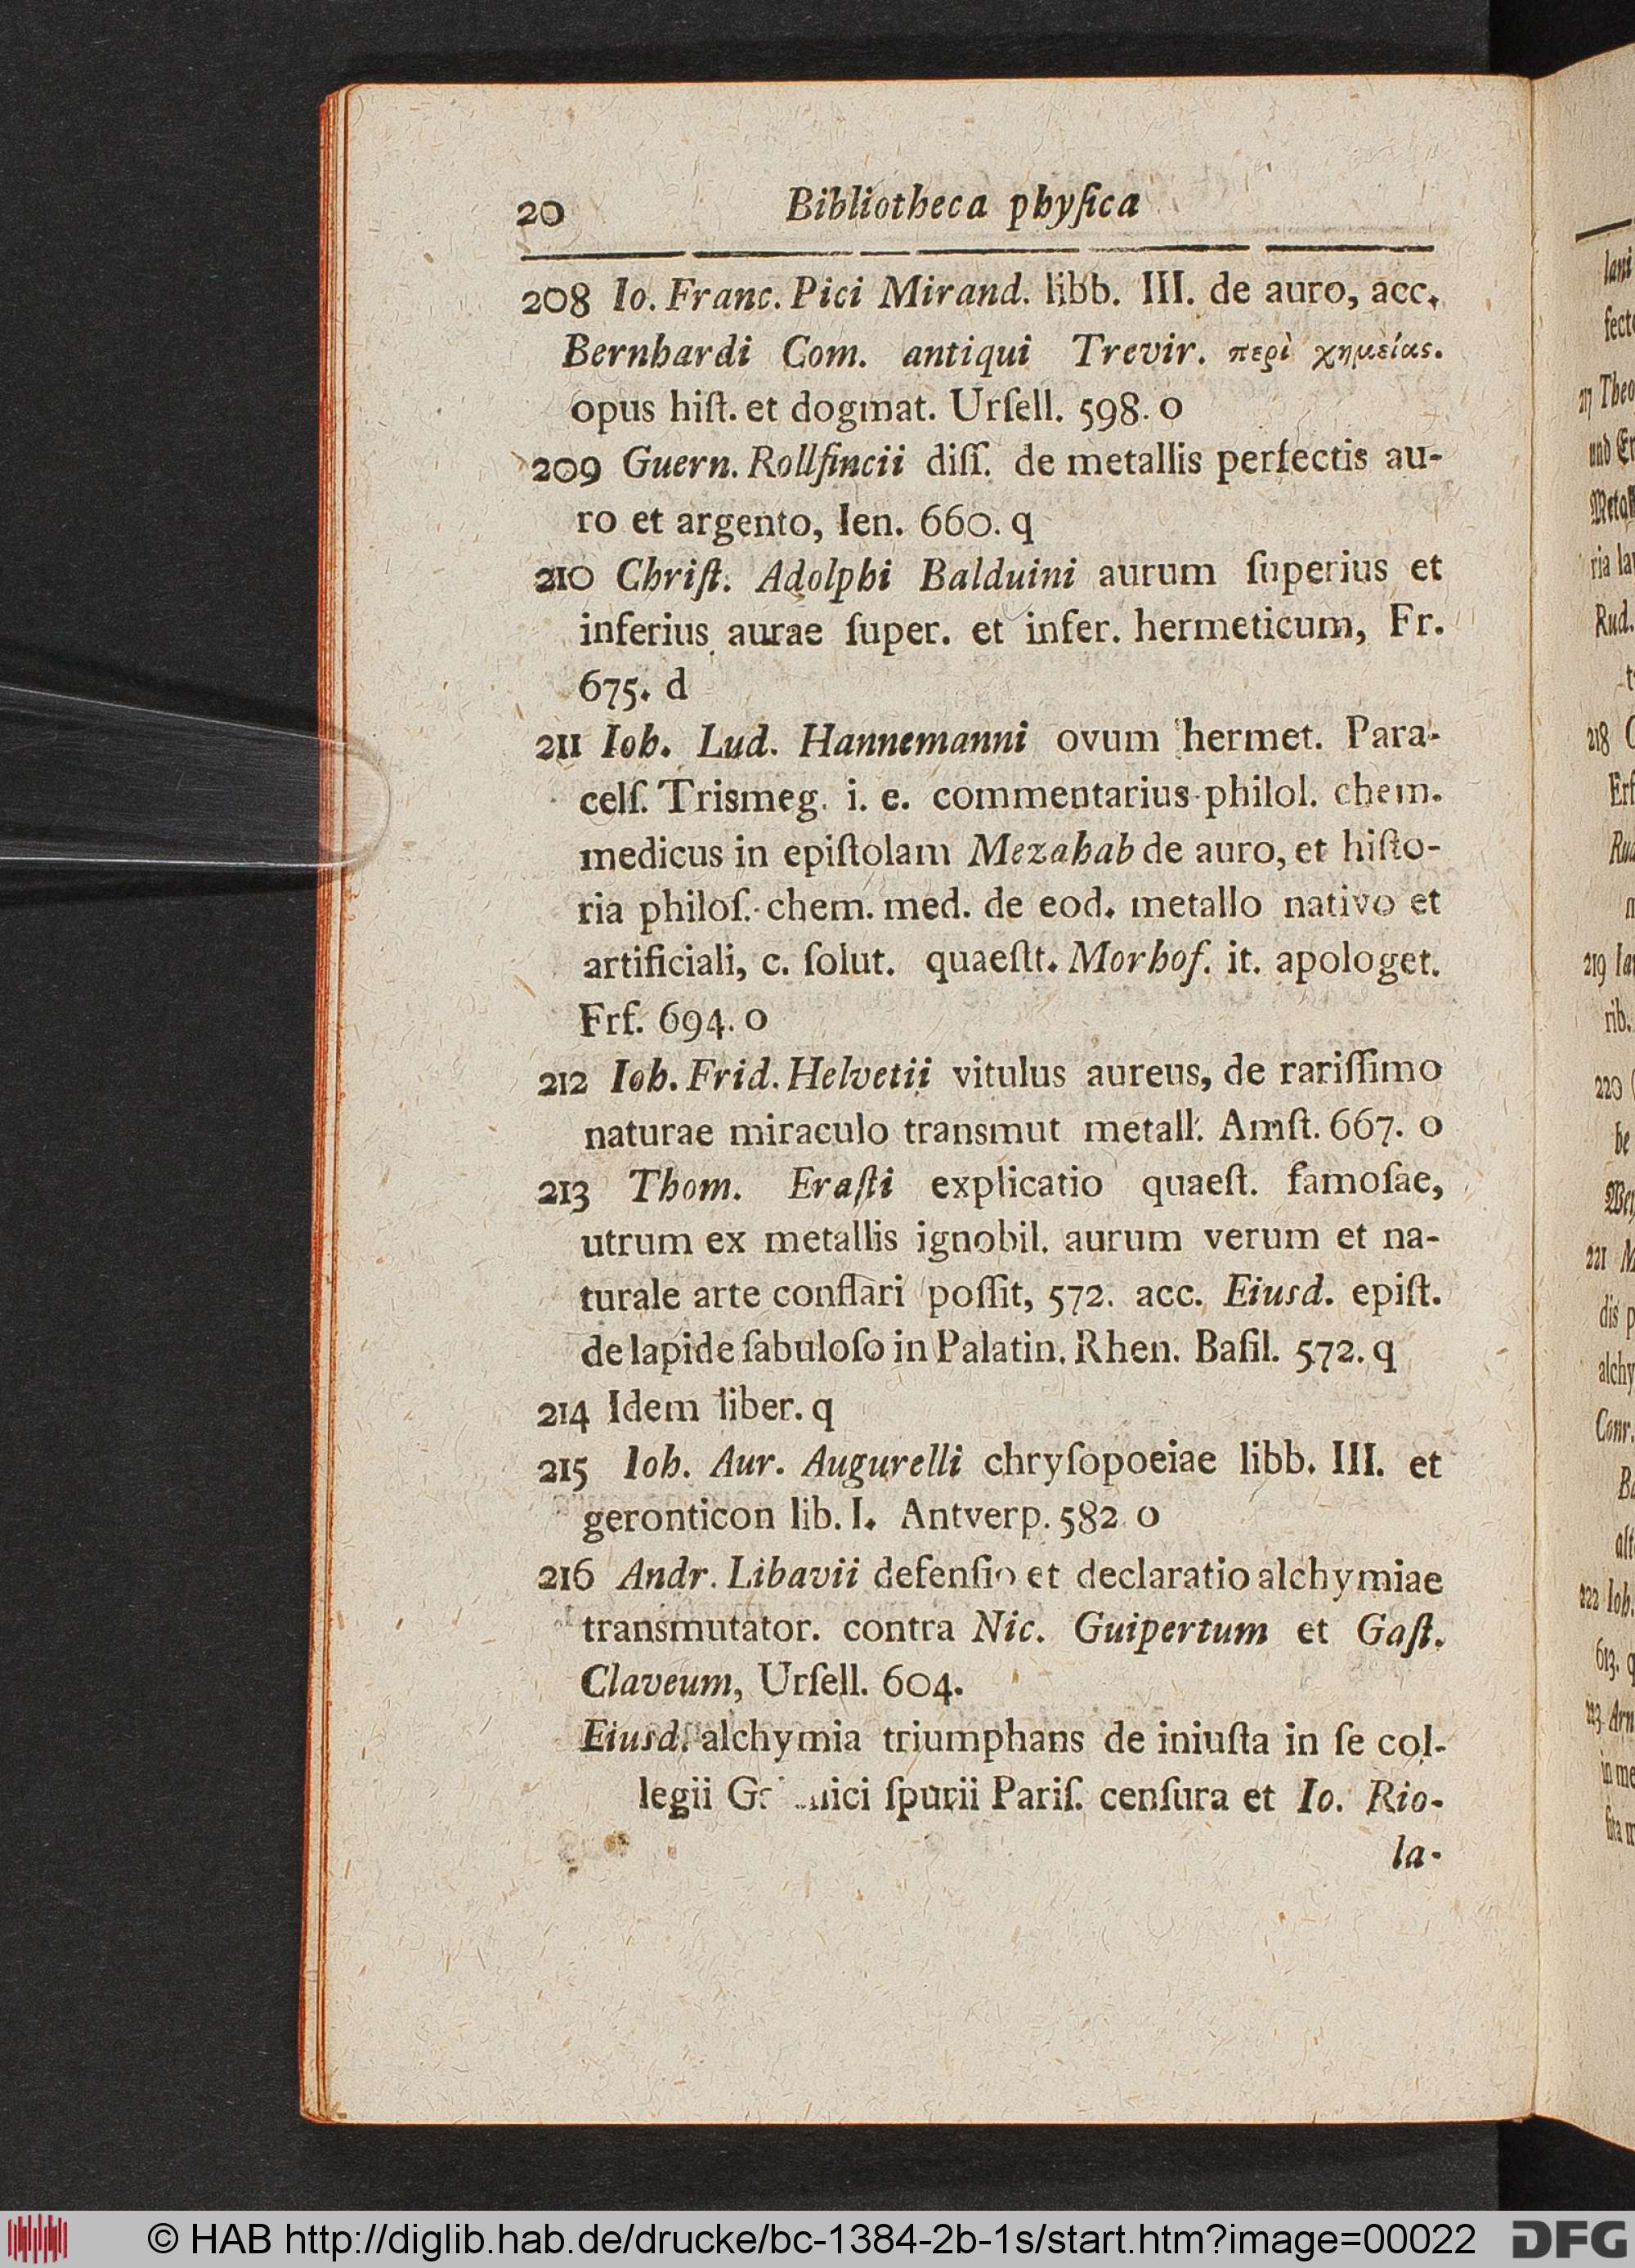 20 Bibliotheca phyſica
208 Io. Franc. Pici Mirand. libb. III. de auro, acc.
Bernhardi Com. antiqui Trevir. περὶ χημείας.
opus hiſt. et dogmat. Urſell. 598. o
209 Guern. Rollfincii diſſ. de metallis perfectis au-
ro et argento, Ien. 660. q
210 Chriſt. Adolphi Balduini aurum ſuperius et
inferius aurae ſuper. et infer. hermeticum, Fr.
675. d
211 Ioh. Lud. Hannemanni ovum hermet. Para-
celſ. Trismeg. i. e. commentarius philol. chem.
medicus in epiſtolam Mezahab de auro, et hiſto-
ria philoſ. chem. med. de eod. metallo nativo et
artificiali, c. ſolut. quaeſtt. Morhof. it. apologet.
Frf. 694. o
212 Ioh. Frid. Helvetii vitulus aureus, de rariſſimo
naturae miraculo transmut metall. Amſt. 667. o
213 Thom. Eraſti explicatio quaeſt. famoſae,
utrum ex metallis ignobil. aurum verum et na-
turale arte conflari poſſit, 572. acc. Eiusd. epiſt.
de lapide fabuloſo in Palatin. Rhen. Baſil. 572. q
214 Idem liber. q
215 Ioh. Aur. Augurelli chryſopoeiae libb. III. et
geronticon lib. I. Antverp. 582 o
216 Andr. Libavii defenſio et declaratio alchymiae
transmutator. contra Nic. Guipertum et Gaſt.
Claveum, Urſell. 604.
Eiusd. alchymia triumphans de iniuſta in ſe col-
legii ſpurii Pariſ. cenſura et Io. Rio-
la-
© HAB http://diglib.hab.de/drucke/bc-1384-2b-1s/start.htm?image=00022 DFG